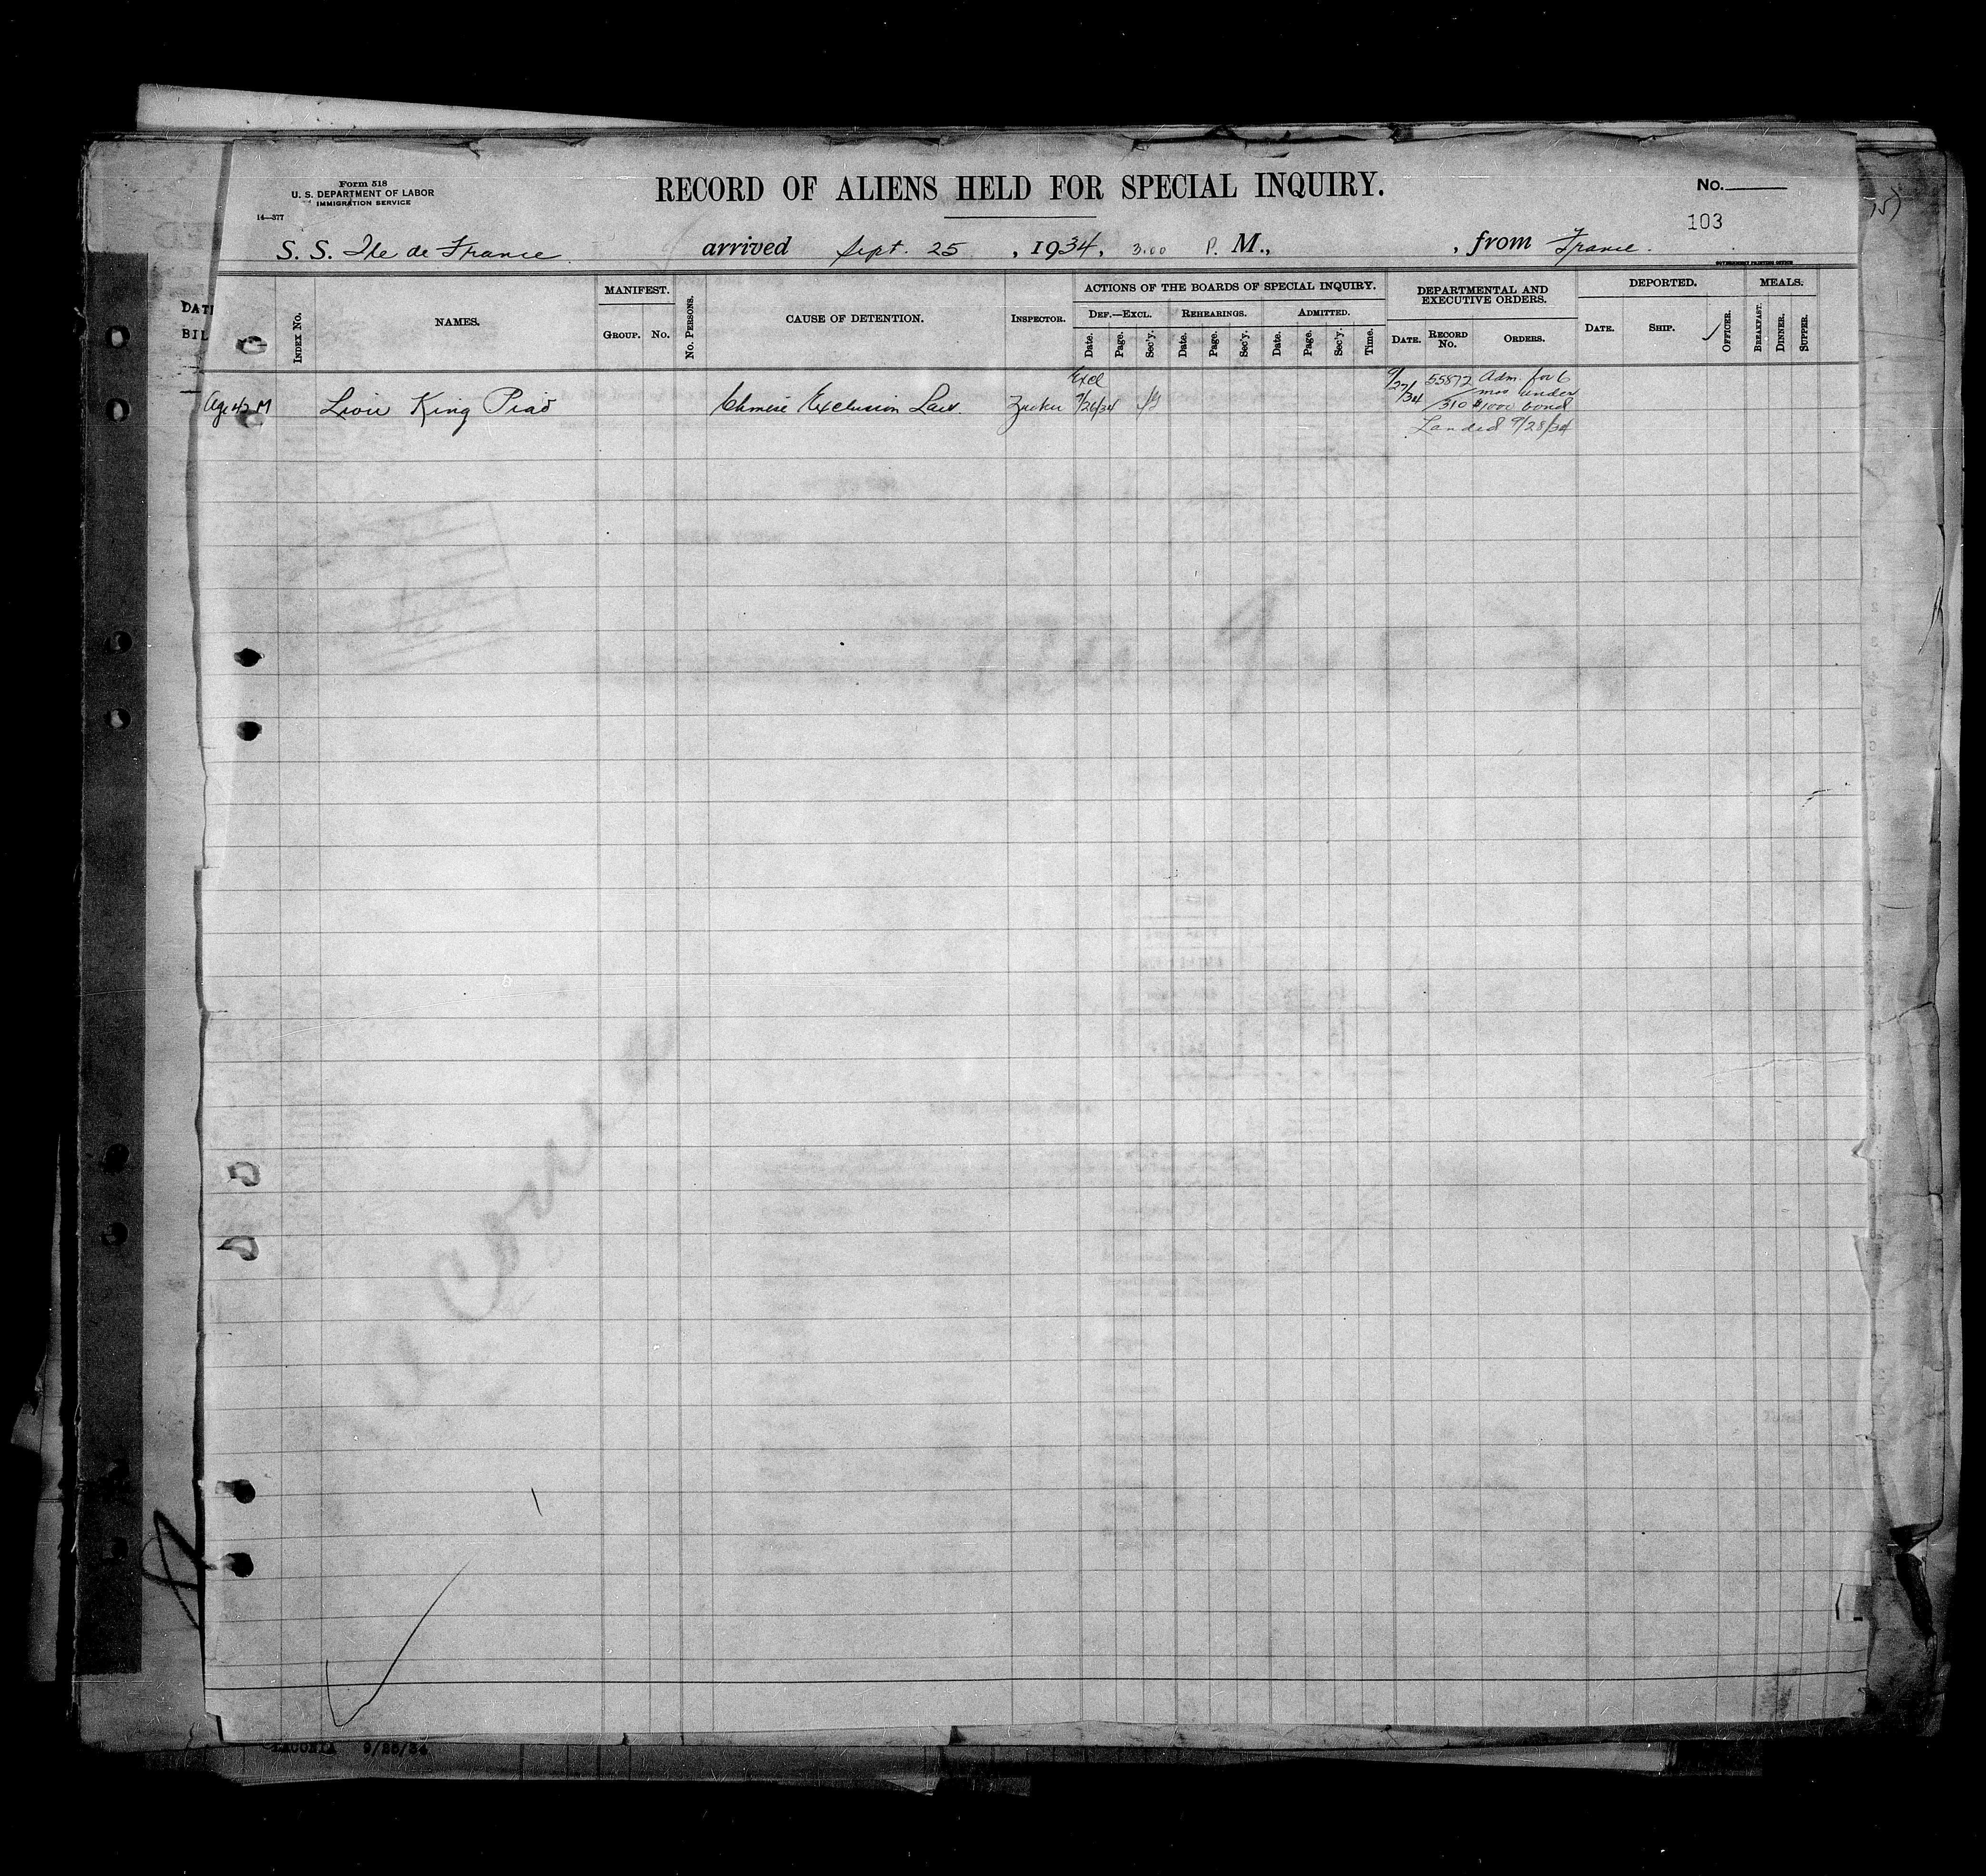 Form 518
U. S. DEPARTMENT OF LABOR
IMMIGRATION SERVICE
14—377
RECORD OF ALIENS HELD FOR SPECIAL INQUIRY.
No.
103
S. S. Ile de France arrived Sept. 25, 1934, 3:00 P. M., , from France.
GOVERNMENT PRINTING OFFICE
DATE
BIL
INDEX No.
NAMES.
MANIFEST.
GROUP. No.
No. PERSONS.
CAUSE OF DETENTION.
INSPECTOR.
ACTIONS OF THE BOARDS OF SPECIAL INQUIRY.
DEF.—EXCL. REHEARINGS. ADMITTED.
Date. Page. Sec'y. Date. Page. Sec'y. Date. Page. Sec'y. Time.
DEPARTMENTAL AND EXECUTIVE ORDERS.
DATE. RECORD No. ORDERS.
DEPORTED.
DATE. SHIP. OFFICER.
MEALS.
BREAKFAST. DINNER. SUPPER.
Age 42 M King Chinese Exclusion Law. Excl 9/26/34
9/27/34 55872/310 Adm. for 6 mos under $1000 bond
Landed 9/28/34
LACONIA 9/25/34